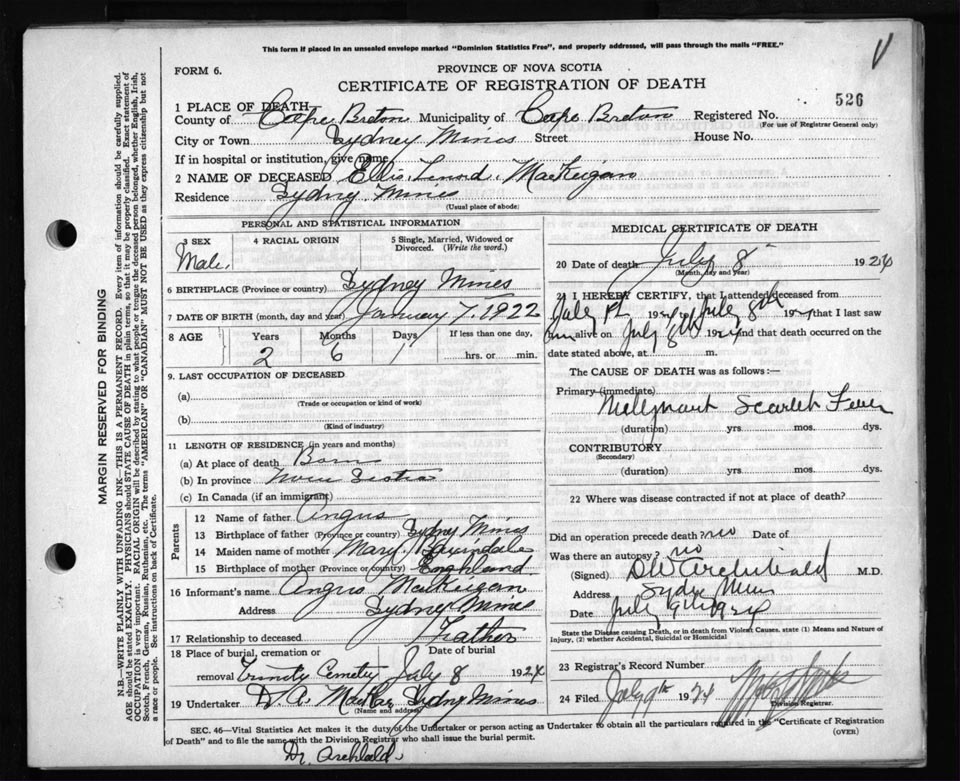 This form if placed in an unsealed envelope marked "Dominion Statistics Free", and properly addressed, will pass through the mails "FREE."
V
FORM 6.
PROVINCE OF NOVA SCOTIA
CERTIFICATE OF REGISTRATION OF DEATH
526
1 PLACE OF DEATH
County of Cape Breton Municipality of Cape Breton Registered No.
(For use of Registrar General only)
City or Town Sydney Mines Street House No.
If in hospital or institution, give name
2 NAME OF DECEASED Ellis Lenord MacKeigan
Residence Sydney Mines
(Usual place of abode)
PERSONAL AND STATISTICAL INFORMATION
3 SEX 4 RACIAL ORIGIN 5 Single, Married, Widowed or Divorced. (Write the word.)
Male.
6 BIRTHPLACE (Province or country) Sydney Mines
7 DATE OF BIRTH (month, day and year) January 7, 1922
8 AGE Years Months Days If less than one day,
2 6 1 hrs. or min.
9. LAST OCCUPATION OF DECEASED
(a)
(Trade or occupation or kind of work)
(b)
(Kind of industry)
11 LENGTH OF RESIDENCE (in years and months)
(a) At place of death Born
(b) In province Nova Scotia
(c) In Canada (if an immigrant)
Parents
12 Name of father Angus
13 Birthplace of father (Province or country) Sydney Mines
14 Maiden name of mother Mary
15 Birthplace of mother (Province or country) England
16 Informant's name Angus MacKeigan
Address Sydney Mines
17 Relationship to deceased Father
18 Place of burial, cremation or Date of burial
removal Trinity Cemetery July 8 1924
19 Undertaker D. A. MacRae Sydney Mines
(Name and address)
MEDICAL CERTIFICATE OF DEATH
20 Date of death July 8 1924
(Month, day and year)
21 I HEREBY CERTIFY, that I attended deceased from
July 1st 1924 July 8th 1924 that I last saw
him alive on July 8th 1924 and that death occurred on
date stated above, at m.
The CAUSE OF DEATH was as follows:—
Primary (immediate)
Malignant Scarlet Fever
(duration) yrs mos. dys.
CONTRIBUTORY
(Secondary)
(duration) yrs. mos. dys.
22 Where was disease contracted if not at place of death?
Did an operation precede death? no Date of
Was there an autopsy? no
(Signed) DW Archibald M.D.
Address Sydney Mines
Date July 9th 1924
State the Disease causing Death, or in death from Violent Causes, state (1) Means and Nature of
Injury, (2) whether Accidental, Suicidal or Homicidal
23 Registrar's Record Number
24 Filed July 9th 1924
Division Registrar.
SEC. 46—Vital Statistics Act makes it the duty of the Undertaker or person acting as Undertaker to obtain all the particulars required in the "Certificate of Registration
of Death" and to file the same with the Division Registrar who shall issue the burial permit.
(OVER)
Dr. Archbald.
MARGIN RESERVED FOR BINDING
N.B.—WRITE PLAINLY WITH UNFADING INK—THIS IS A PERMANENT RECORD. Every item of information should be carefully supplied.
AGE should be stated EXACTLY. PHYSICIANS should STATE CAUSE OF DEATH in plain terms, so that it may be properly classified. Exact statement of
OCCUPATION is very important. RACIAL ORIGIN will be described by stating to what people or tongue the deceased person belonged, whether English, Irish,
Scotch, French, German, Russian, Ruthenian, etc. The terms "AMERICAN" or "CANADIAN" MUST NOT BE USED as they express citizenship but not
a race or people. See instructions on back of Certificate.